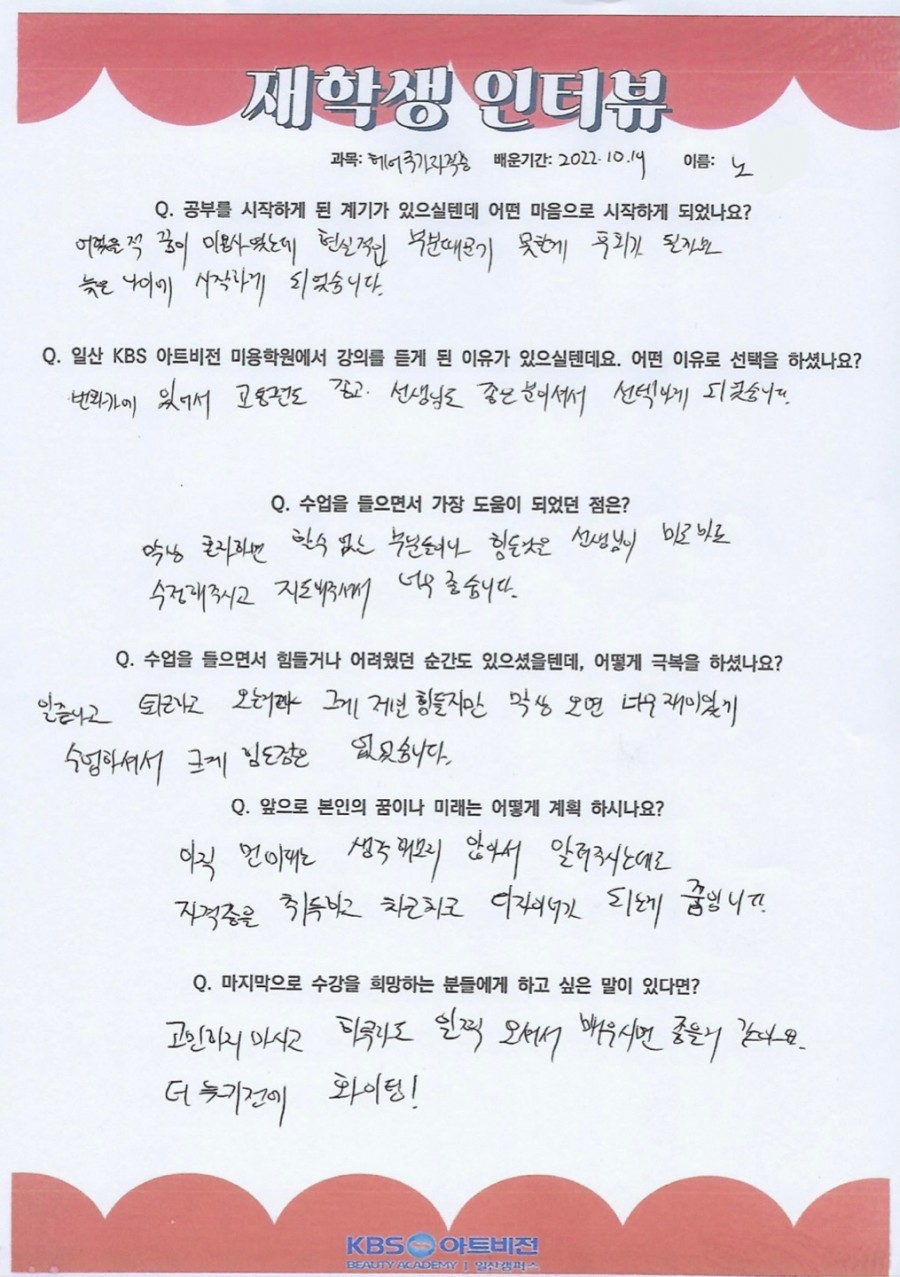 재학생 인터뷰
과목: 헤어국가자격증 배운기간: 2022.10.19 이름: 노
Q. 공부를 시작하게 된 계기가 있으실텐데 어떤 마음으로 시작하게 되었나요?
어렸을 적 꿈이 미용사였는데 현실적인 부분때문기 못한게 후회가 된지라
늦은 나이에 시작하게 되었습니다.
Q. 일산 KBS 아트비전 미용학원에서 강의를 듣게 된 이유가 있으실텐데요. 어떤 이유로 선택을 하셨나요?
번화가에 있어서 교통편도 좋고 선생님도 좋은분이셔서 선택하게 되었습니다.
Q. 수업을 들으면서 가장 도움이 되었던 점은?
막상 혼자하면 할수 없는 부분들이나 힘든것은 선생님이 바로바로
수정해주시고 지도해주셔서 너무 좋습니다.
Q. 수업을 들으면서 힘들거나 어려웠던 순간도 있으셨을텐데, 어떻게 극복을 하셨나요?
일끝나고 퇴근하고 오는거라 그게 제일 힘들지만 막상 오면 너무 재미있게
수업하셔서 크게 힘든점은 없었습니다.
Q. 앞으로 본인의 꿈이나 미래는 어떻게 계획 하시나요?
아직 먼미래는 생각해보지 않아서 알려주시는데로
자격증을 취득하고 차근차근 디자이너가 되는게 꿈입니다.
Q. 마지막으로 수강을 희망하는 분들에게 하고 싶은 말이 있다면?
고민하지 마시고 하루라도 일찍 오셔서 배우시면 좋을거 같아요.
더 늦기전에 화이팅!
KBS 아트비전
BEAUTY ACADEMY | 일산캠퍼스